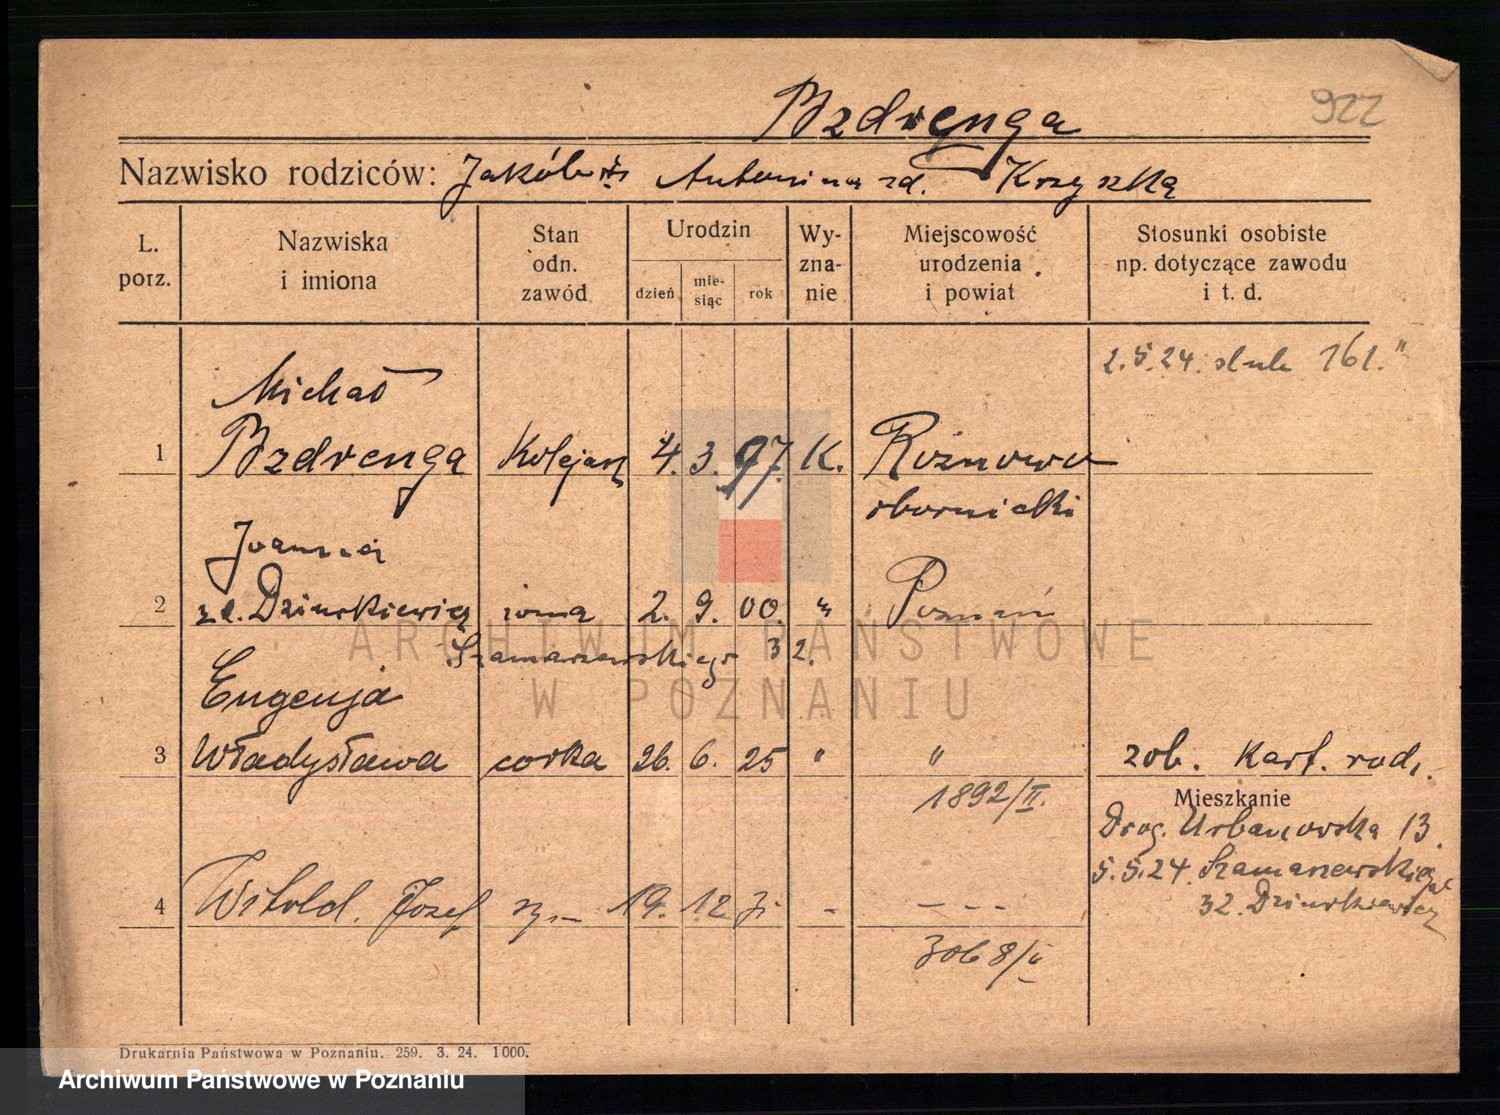 Bzdrenga
922
Nazwisko rodziców: Jakób Antonina zd. Krzyszka
L. porz.
Nazwiska i imiona
Stan odn. zawód
Urodzin
dzień
mie-siąc
rok
Wy-zna-nie
Miejscowość urodzenia i powiat
Stosunki osobiste np. dotyczące zawodu i t. d.
2.5.24. ślub 161."
Michał
1 Bzdrenga Kolejarz 4. 3. 97. K. Rożnowo
obornicki
Joanna
2 zd. Dziurkiewicz żona 2. 9. 00. " Poznań
ARCHIWUM PAŃSTWOWE
Szamarzewskiego 32.
W POZNANIU
Eugenja
3 Władysława córka 26. 6. 25 " " zob. Kart. rodz.
1892/II.
Mieszkanie
Drog. Urbanowska 13.
5.5.24. Szamarzewskiego
4 Witold. Józef 19. 12 - - - -
32. Dziurkiewicz
zob 8/
Drukarnia Państwowa w Poznaniu. 259. 3. 24. 1000.
Archiwum Państwowe w Poznaniu